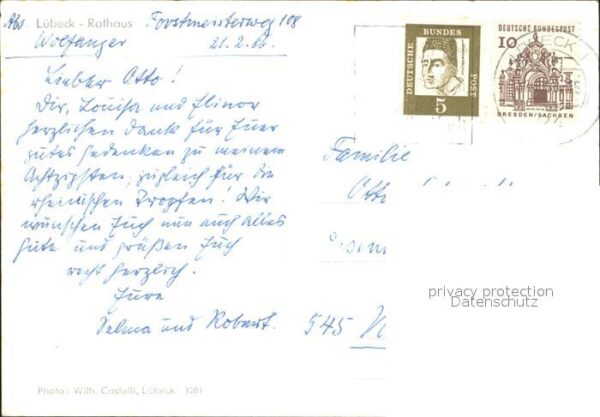 Lübeck - Rathaus
Abs. Forstmeisterweg 108
Wolfanger 21.2.66
Liebster Otto!
Dir, Louisa und Elinor
herzlichen Dank für Euer
gutes Gedenken zu meinem
Achtzigsten, zugleich für die
rheinischen Tropfen! Wir
wünschen Euch nun auch alles
Gute und grüßen Euch
recht herzlich.
Eure
Selma und Robert.
Photo: Wilh. Castelli, Lübeck 3201
DEUTSCHE BUNDES POST
5
DEUTSCHE BUNDESPOST
10
DRESDEN/SACHSEN
Familie
Otto
545
privacy protection
Datenschutz